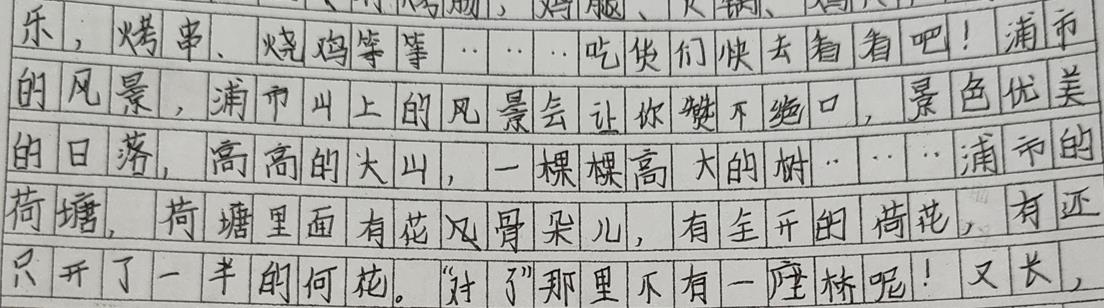 烤肠，鸡腿、火锅、鸡
乐，烤串、烧鸡等等………吃货们快去看看吧！浦市
的风景，浦市山上的风景会让你赞不绝口，景色优美
的日落，高高的大山，一棵棵高大的树………浦市的
荷塘，荷塘里面有花风骨朵儿，有全开的荷花，有还
只开了一半的何花。“对了”那里不有一座桥呢！又长，